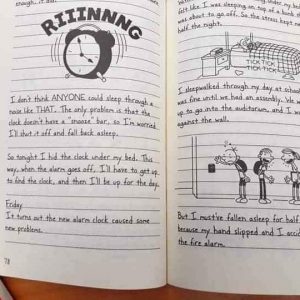 enough, it did.
RIIINNNG
I don't think ANYONE could sleep through a
noise like THAT. The only problem is that the
clock doesn't have a "snooze" bar, so I'm worried
I'll shut it off and fall back asleep.
So tonight I hid the clock under my bed. This
way, when the alarm goes off, I'll have to get up
to find the clock, and then I'll be up for the day.
Friday
It turns out the new alarm clock caused some
new problems.
78
felt like I was sleeping on top of a bomb
was about to go off. So the stress kept m
half the night.
TICK TICK
TICK TICK
I sleepwalked through my day at school
was fine until we had an assembly. We
up to go into the auditorium, and I was
against the wall.
But I must've fallen asleep for half
because my hand slipped and I accid
the fire alarm.